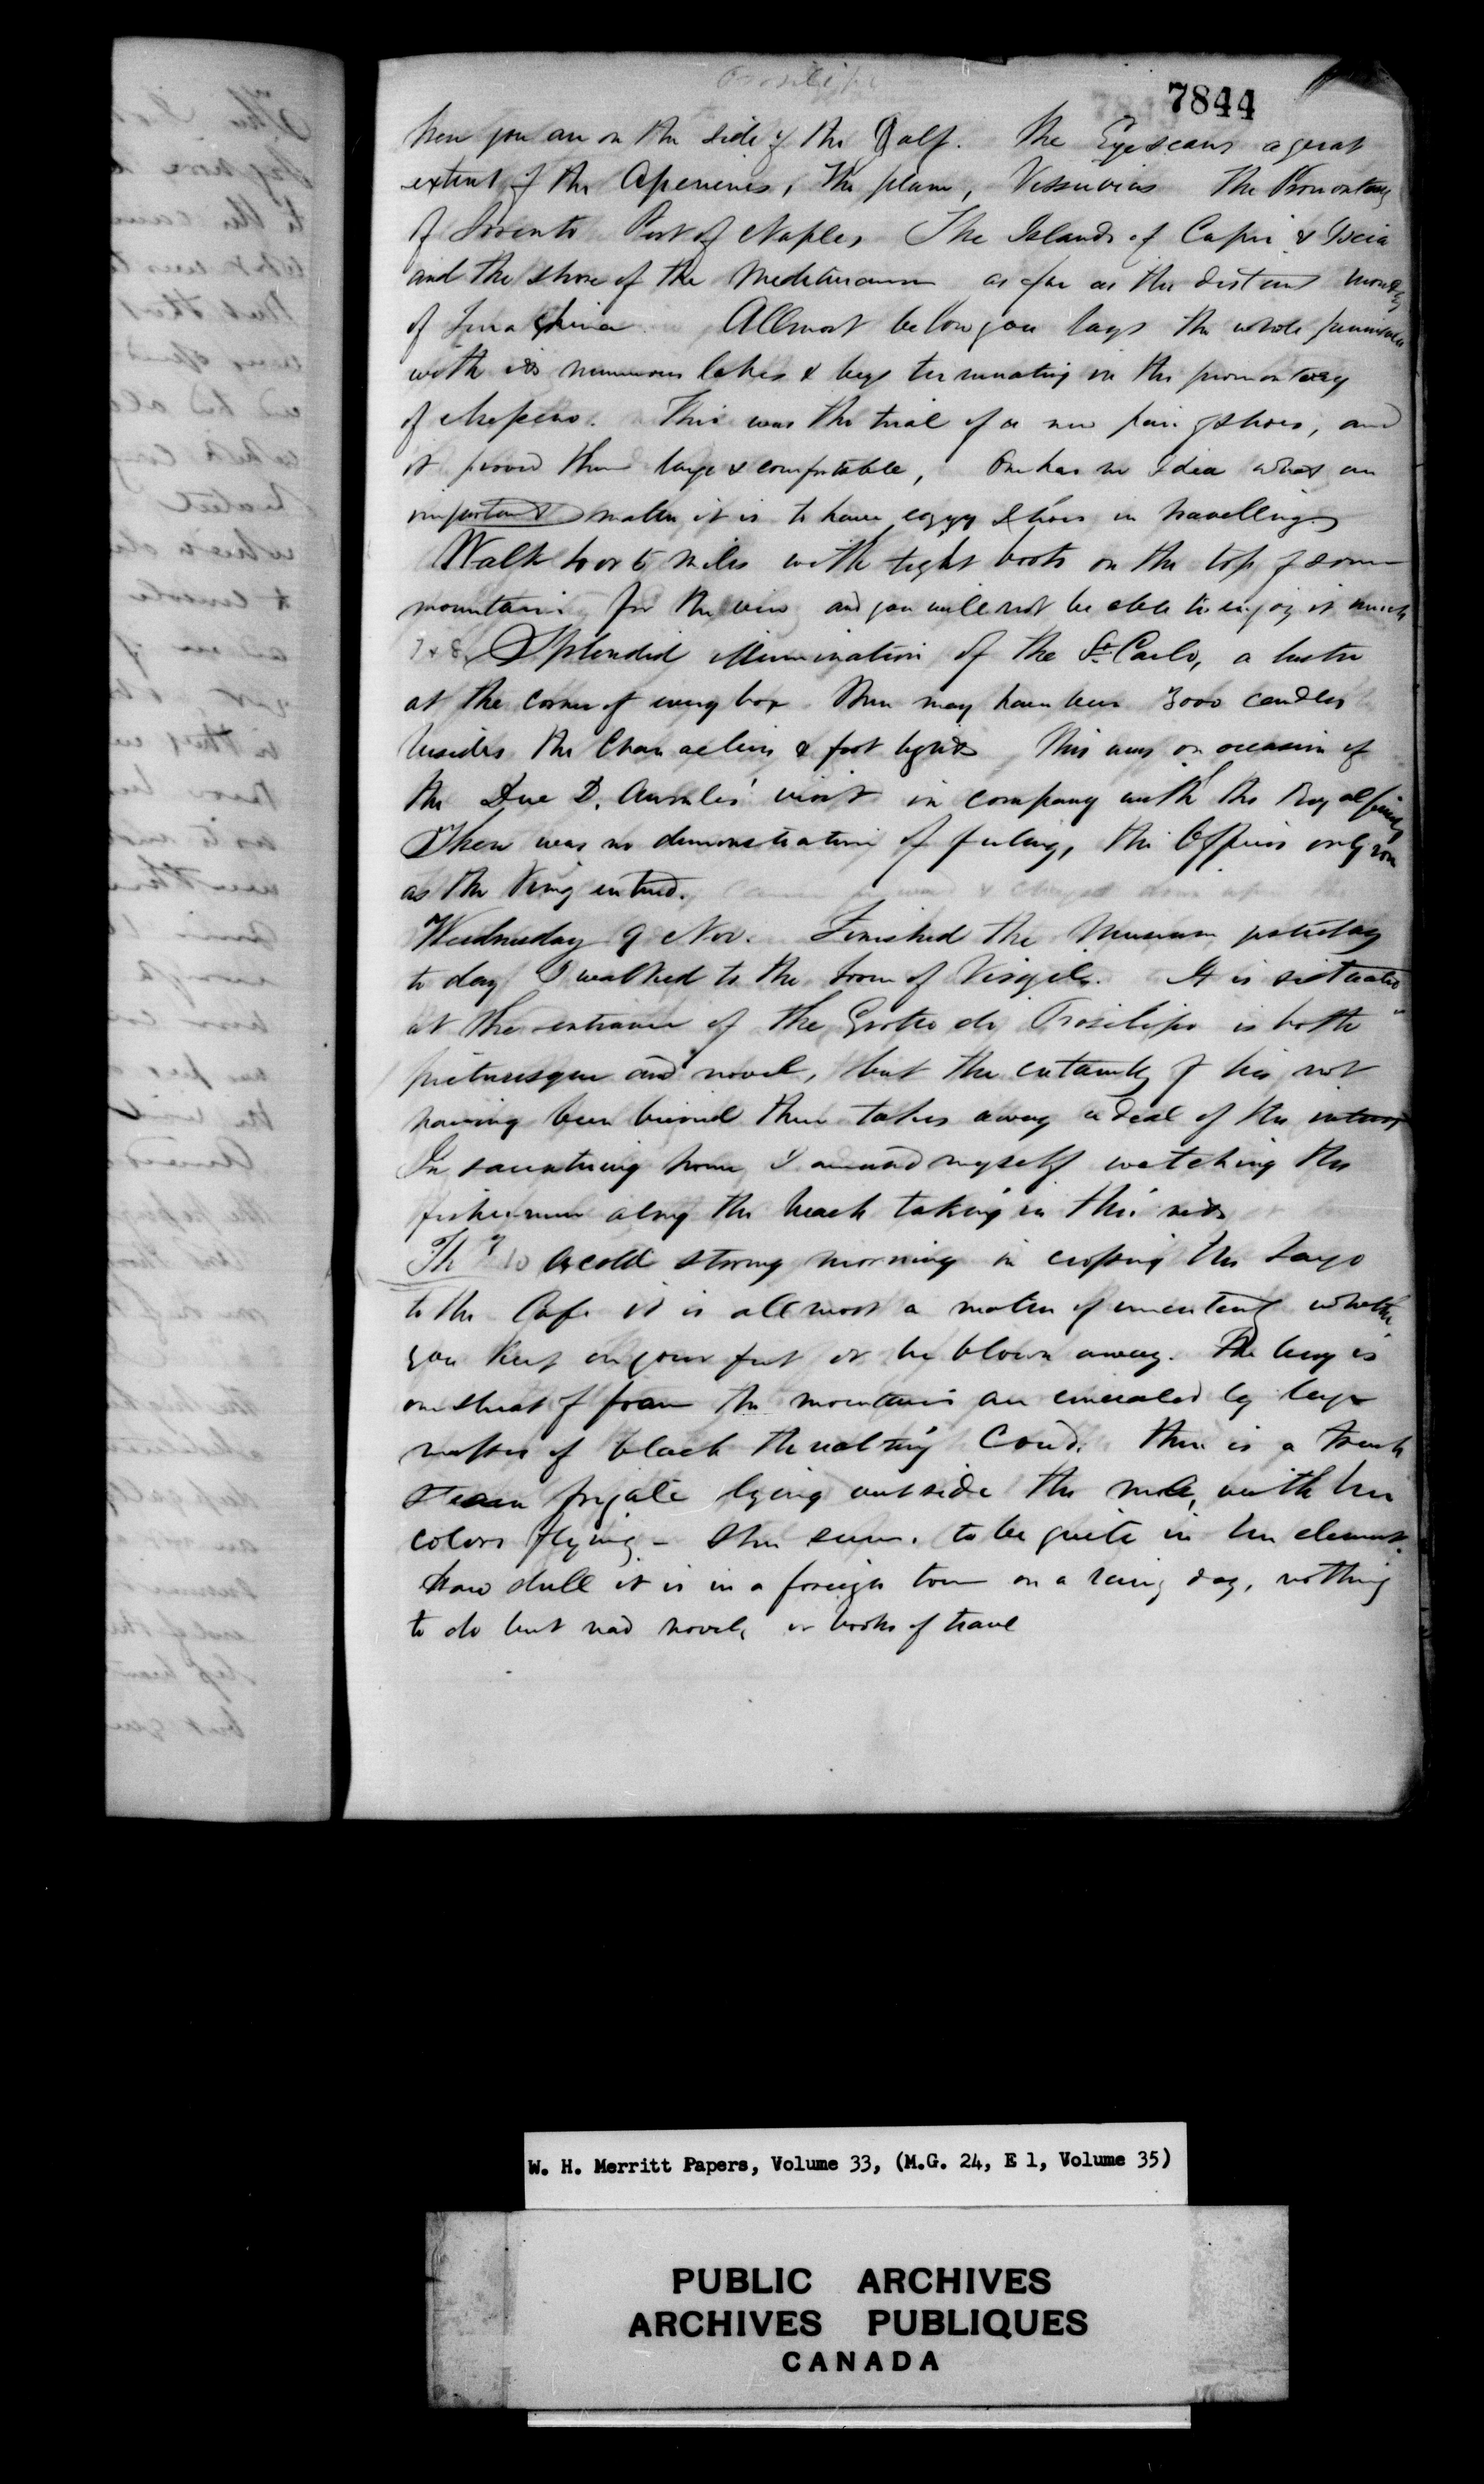 7844
here you are on the side of the Galf. The Eye scans a great
extent of the Apenines, The plain, Vessuvius The Promontory
of Sorento Port of Naples The Islands of Capri & Iscia
and the shore of the Mediteranean as far as the distant
of Allmost below you lays the whole peninsula
with its numerous lakes & bays terminating in the promontory
of This was the trial of a new pair of shoes, and
it proved them large & comfortable, One has no Idea what an
important matter it is to have eazy shoes in travelling
Walk 4 or 5 miles with tight boots on the top of some
mountain for the view and you will not be able to enjoy it much
7 & 8 Splendid illumination of the St. Carlo, a lustre
at the corner of every box. There may have been 3000 candles
besides the & foot lights This was on occasion of
the Duc D. Aumales' visit in company with the Royal family
There was no demonstration of feeling, the Officers only rose
as the King entred.
Wednesday 9 Nov. Finished the Museum yesterday
to day I walked to the Tom of Virgil. It is situated
at the entrance of the Grotto di Posilipo is both
picturesque and novel, but the certainty of his not
having been buried there takes away a deal of the interest
In sauntering home I amused myself watching the
fishermen along the beach taking in their nets
Thy 10 A cold stormy morning in crossing the Largo
to the Cafe it is allmost a matter of uncertainty whether
you keep on your feet or be blown away. The bay is
one sheet of foam the mountains are concealed by large
masses of black threatning Coud. There is a French
steam frigate lying outside the mole, with her
colors flying - She seems to be quite in her element.
How dull it is in a foreign town on a rainy day, nothing
to do but read novels or books of travel
W. H. Merritt Papers, Volume 33, (M.G. 24, E 1, Volume 35)
PUBLIC ARCHIVES
ARCHIVES PUBLIQUES
CANADA